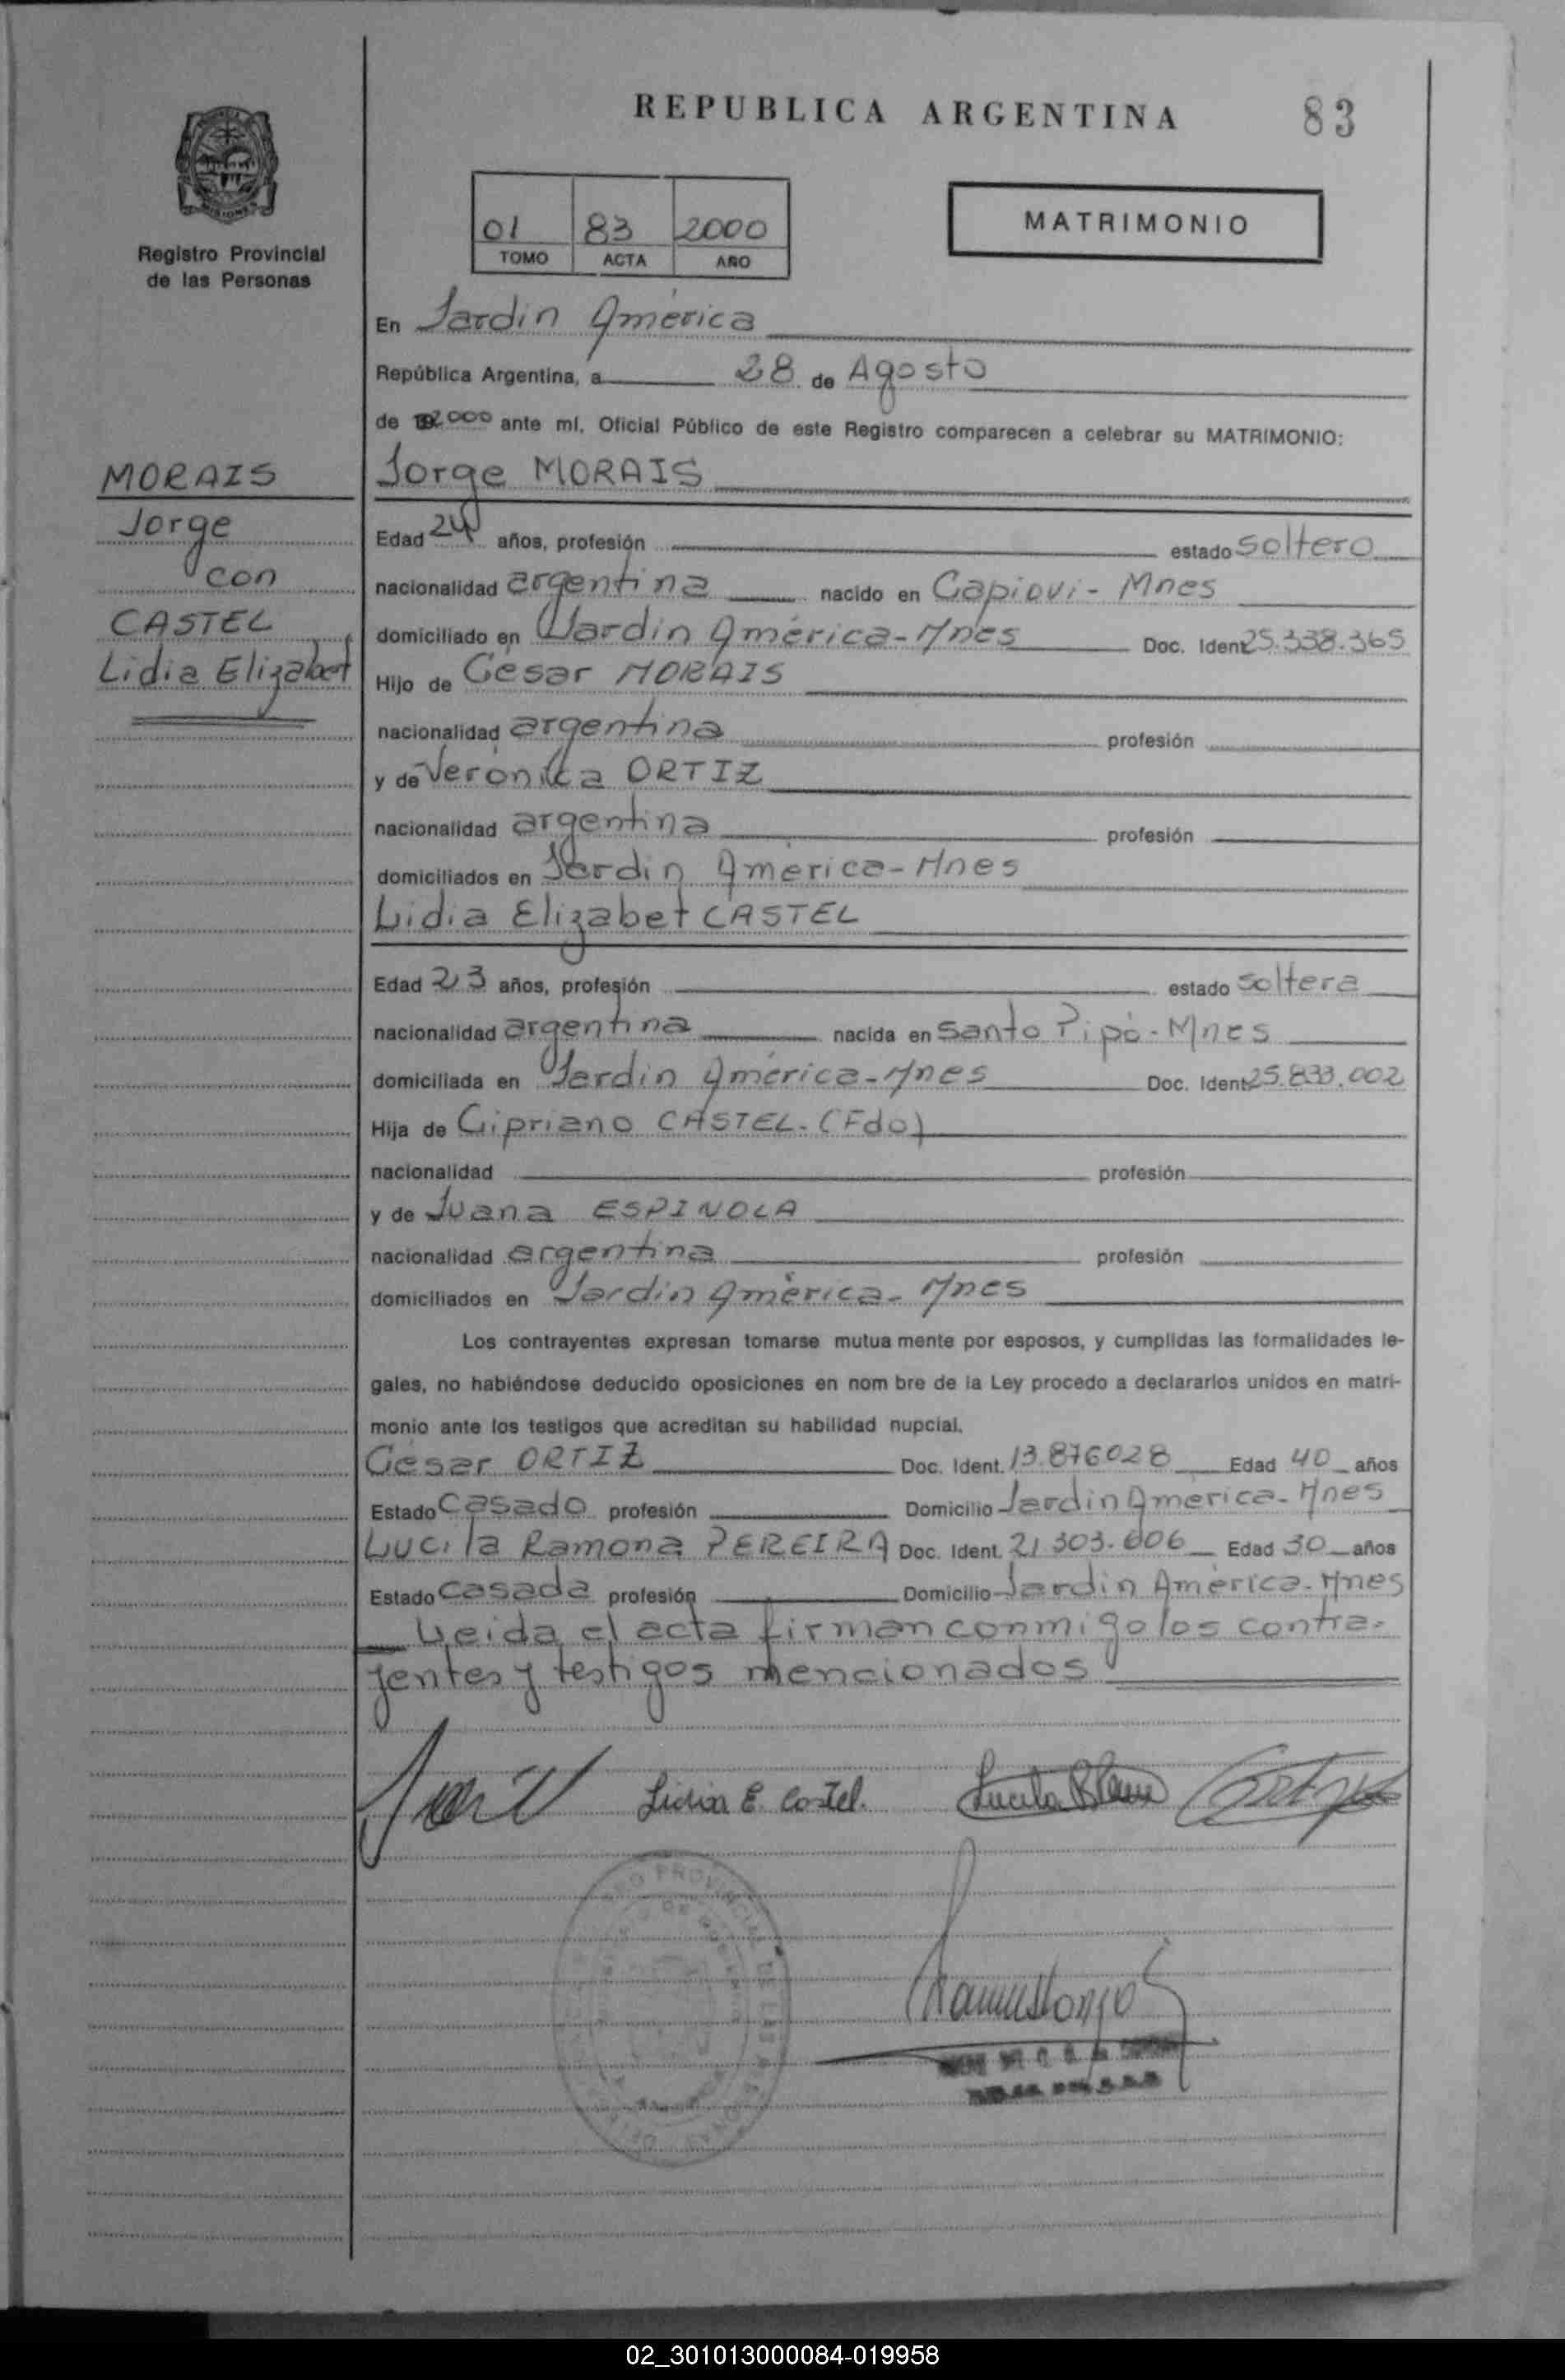 REPUBLICA ARGENTINA
83
01 83 2000
TOMO ACTA AÑO
MATRIMONIO
MISIONES
Registro Provincial
de las Personas
MORAIS
Jorge
con
CASTEL
Lidia Elizabet
En Jardín América
República Argentina, a 28 de Agosto
de 2000 ante mí, Oficial Público de este Registro comparecen a celebrar su MATRIMONIO:
Jorge MORAIS
Edad 24 años, profesión estado soltero
nacionalidad argentina nacido en Capioví - Mnes
domiciliado en Jardín América - Mnes Doc. Ident. 25.338.365
Hijo de César MORAIS
nacionalidad argentina profesión
y de Verónica ORTIZ
nacionalidad argentina profesión
domiciliados en Jardín América - Mnes
Lidia Elizabet CASTEL
Edad 23 años, profesión estado soltera
nacionalidad argentina nacida en Santo Pipó - Mnes
domiciliada en Jardín América - Mnes Doc. Ident. 25.833.002
Hija de Cipriano CASTEL - (Fdo)
nacionalidad profesión
y de Juana ESPINOLA
nacionalidad argentina profesión
domiciliados en Jardín América - Mnes
Los contrayentes expresan tomarse mutua mente por esposos, y cumplidas las formalidades le-
gales, no habiéndose deducido oposiciones en nom bre de la Ley procedo a declararlos unidos en matri-
monio ante los testigos que acreditan su habilidad nupcial.
César ORTIZ Doc. Ident. 13.876028 Edad 40 años
Estado casado profesión Domicilio Jardín América - Mnes
Lucila Ramona PEREIRA Doc. Ident. 21303.606 Edad 30 años
Estado casada profesión Domicilio Jardín América - Mnes
Leida el acta firman conmigo los contra-
yentes y testigos mencionados
Lidia E. Castel.
02_301013000084-019958